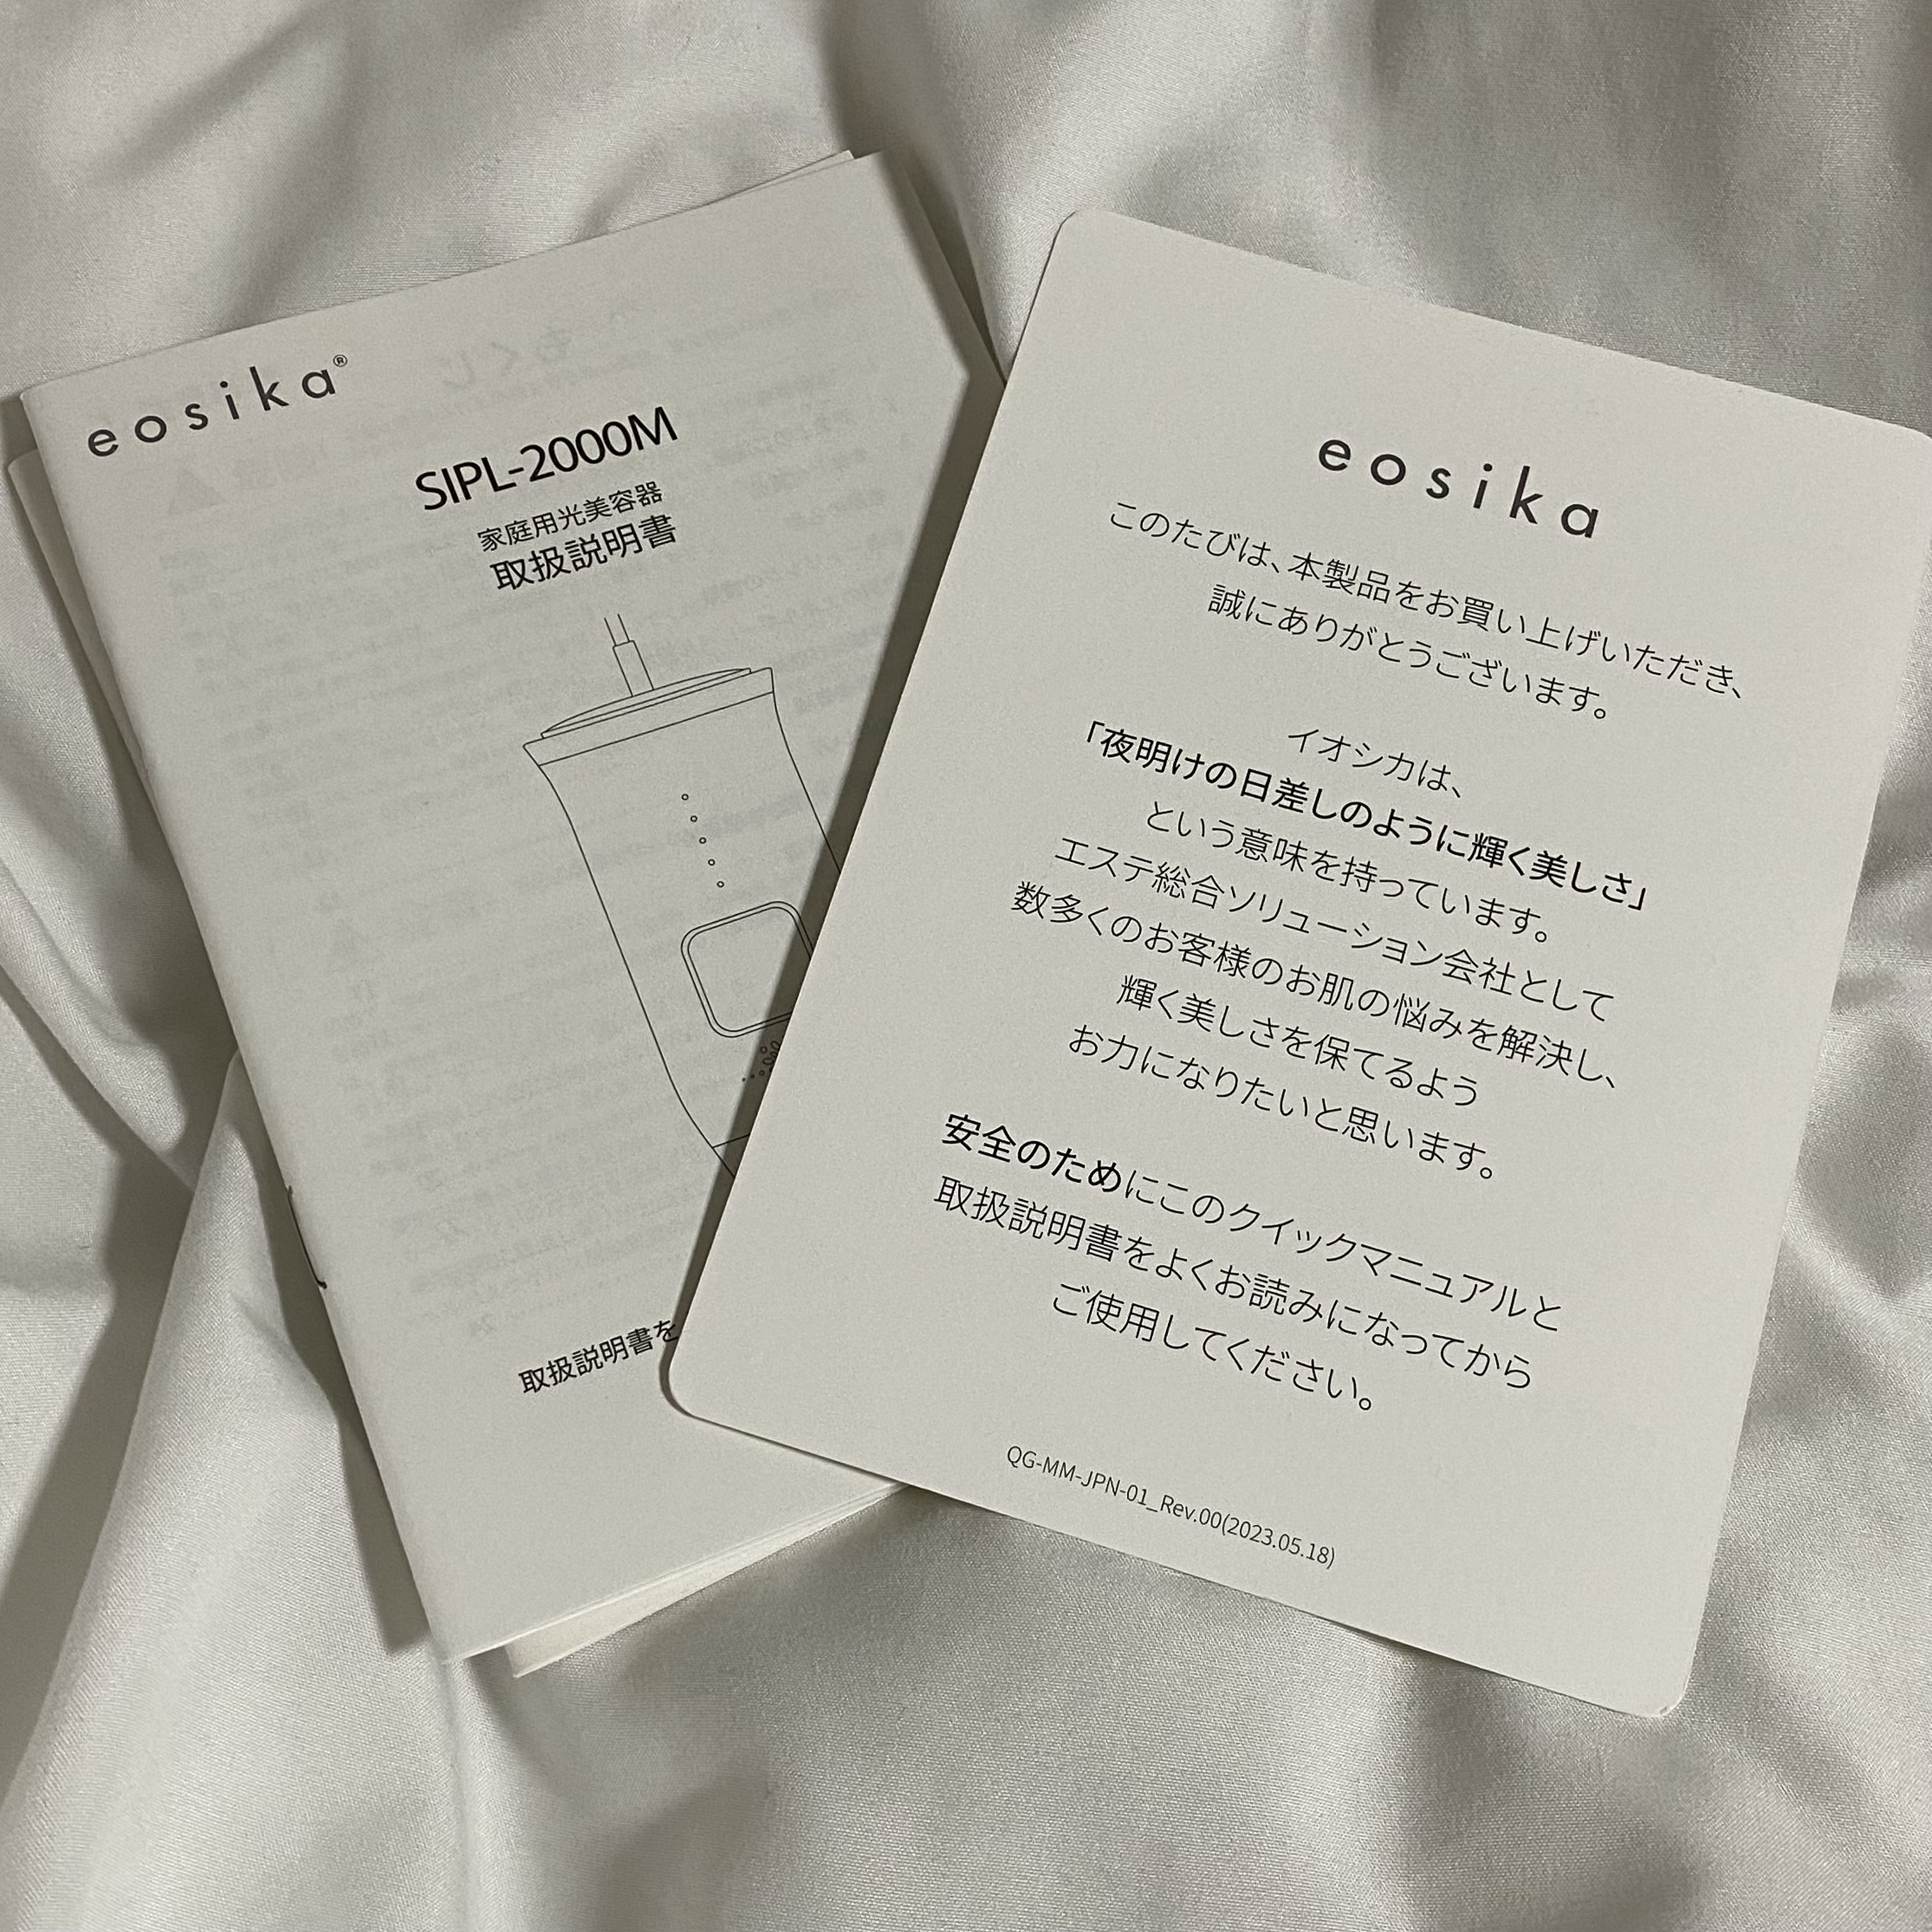 eosika®
SIPL-2000M
家庭用光美容器
取扱説明書
取扱説明書を
eosika
このたびは、本製品をお買い上げいただき、
誠にありがとうございます。
イオシカは、
「夜明けの日差しのように輝く美しさ」
という意味を持っています。
エステ総合ソリューション会社として
数多くのお客様のお肌の悩みを解決し、
輝く美しさを保てるよう
お力になりたいと思います。
安全のためにこのクイックマニュアルと
取扱説明書をよくお読みになってから
ご使用してください。
QG-MM-JPN-01_Rev.00(2023.05.18)